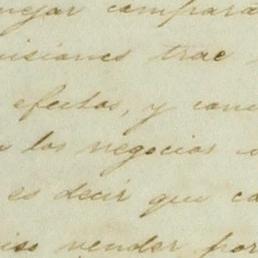 mejar compara
visiones trae
efectos, y con
los negocios
es decir que ca
iso vender por